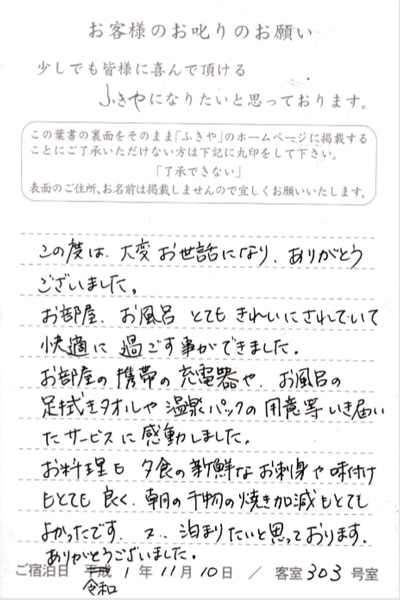 お客様のお叱りのお願い
少しでも皆様に喜んで頂ける
ふきやになりたいと思っております。
この葉書の裏面をそのまま「ふきや」のホームページに掲載する
ことにご了承いただけない方は下記に丸印をして下さい。
「了承できない」
表面のご住所、お名前は掲載しませんので宜しくお願いいたします。
この度は、大変お世話になり、ありがとう
ございました。
お部屋、お風呂 とても きれいにされていて
快適に 過ごす事ができました。
お部屋の 携帯の 充電器や、お風呂の
足拭きタオルや 温泉パックの用意等 いき届い
たサービスに 感動しました。
お料理も 夕食の新鮮なお刺身や味付け
もとても 良く、朝の干物の焼き加減もとても
よかったです。又、泊まりたいと思っております。
ありがとうございました。
ご宿泊日 平成 1 年 11 月 10 日 / 客室 303 号室
令和